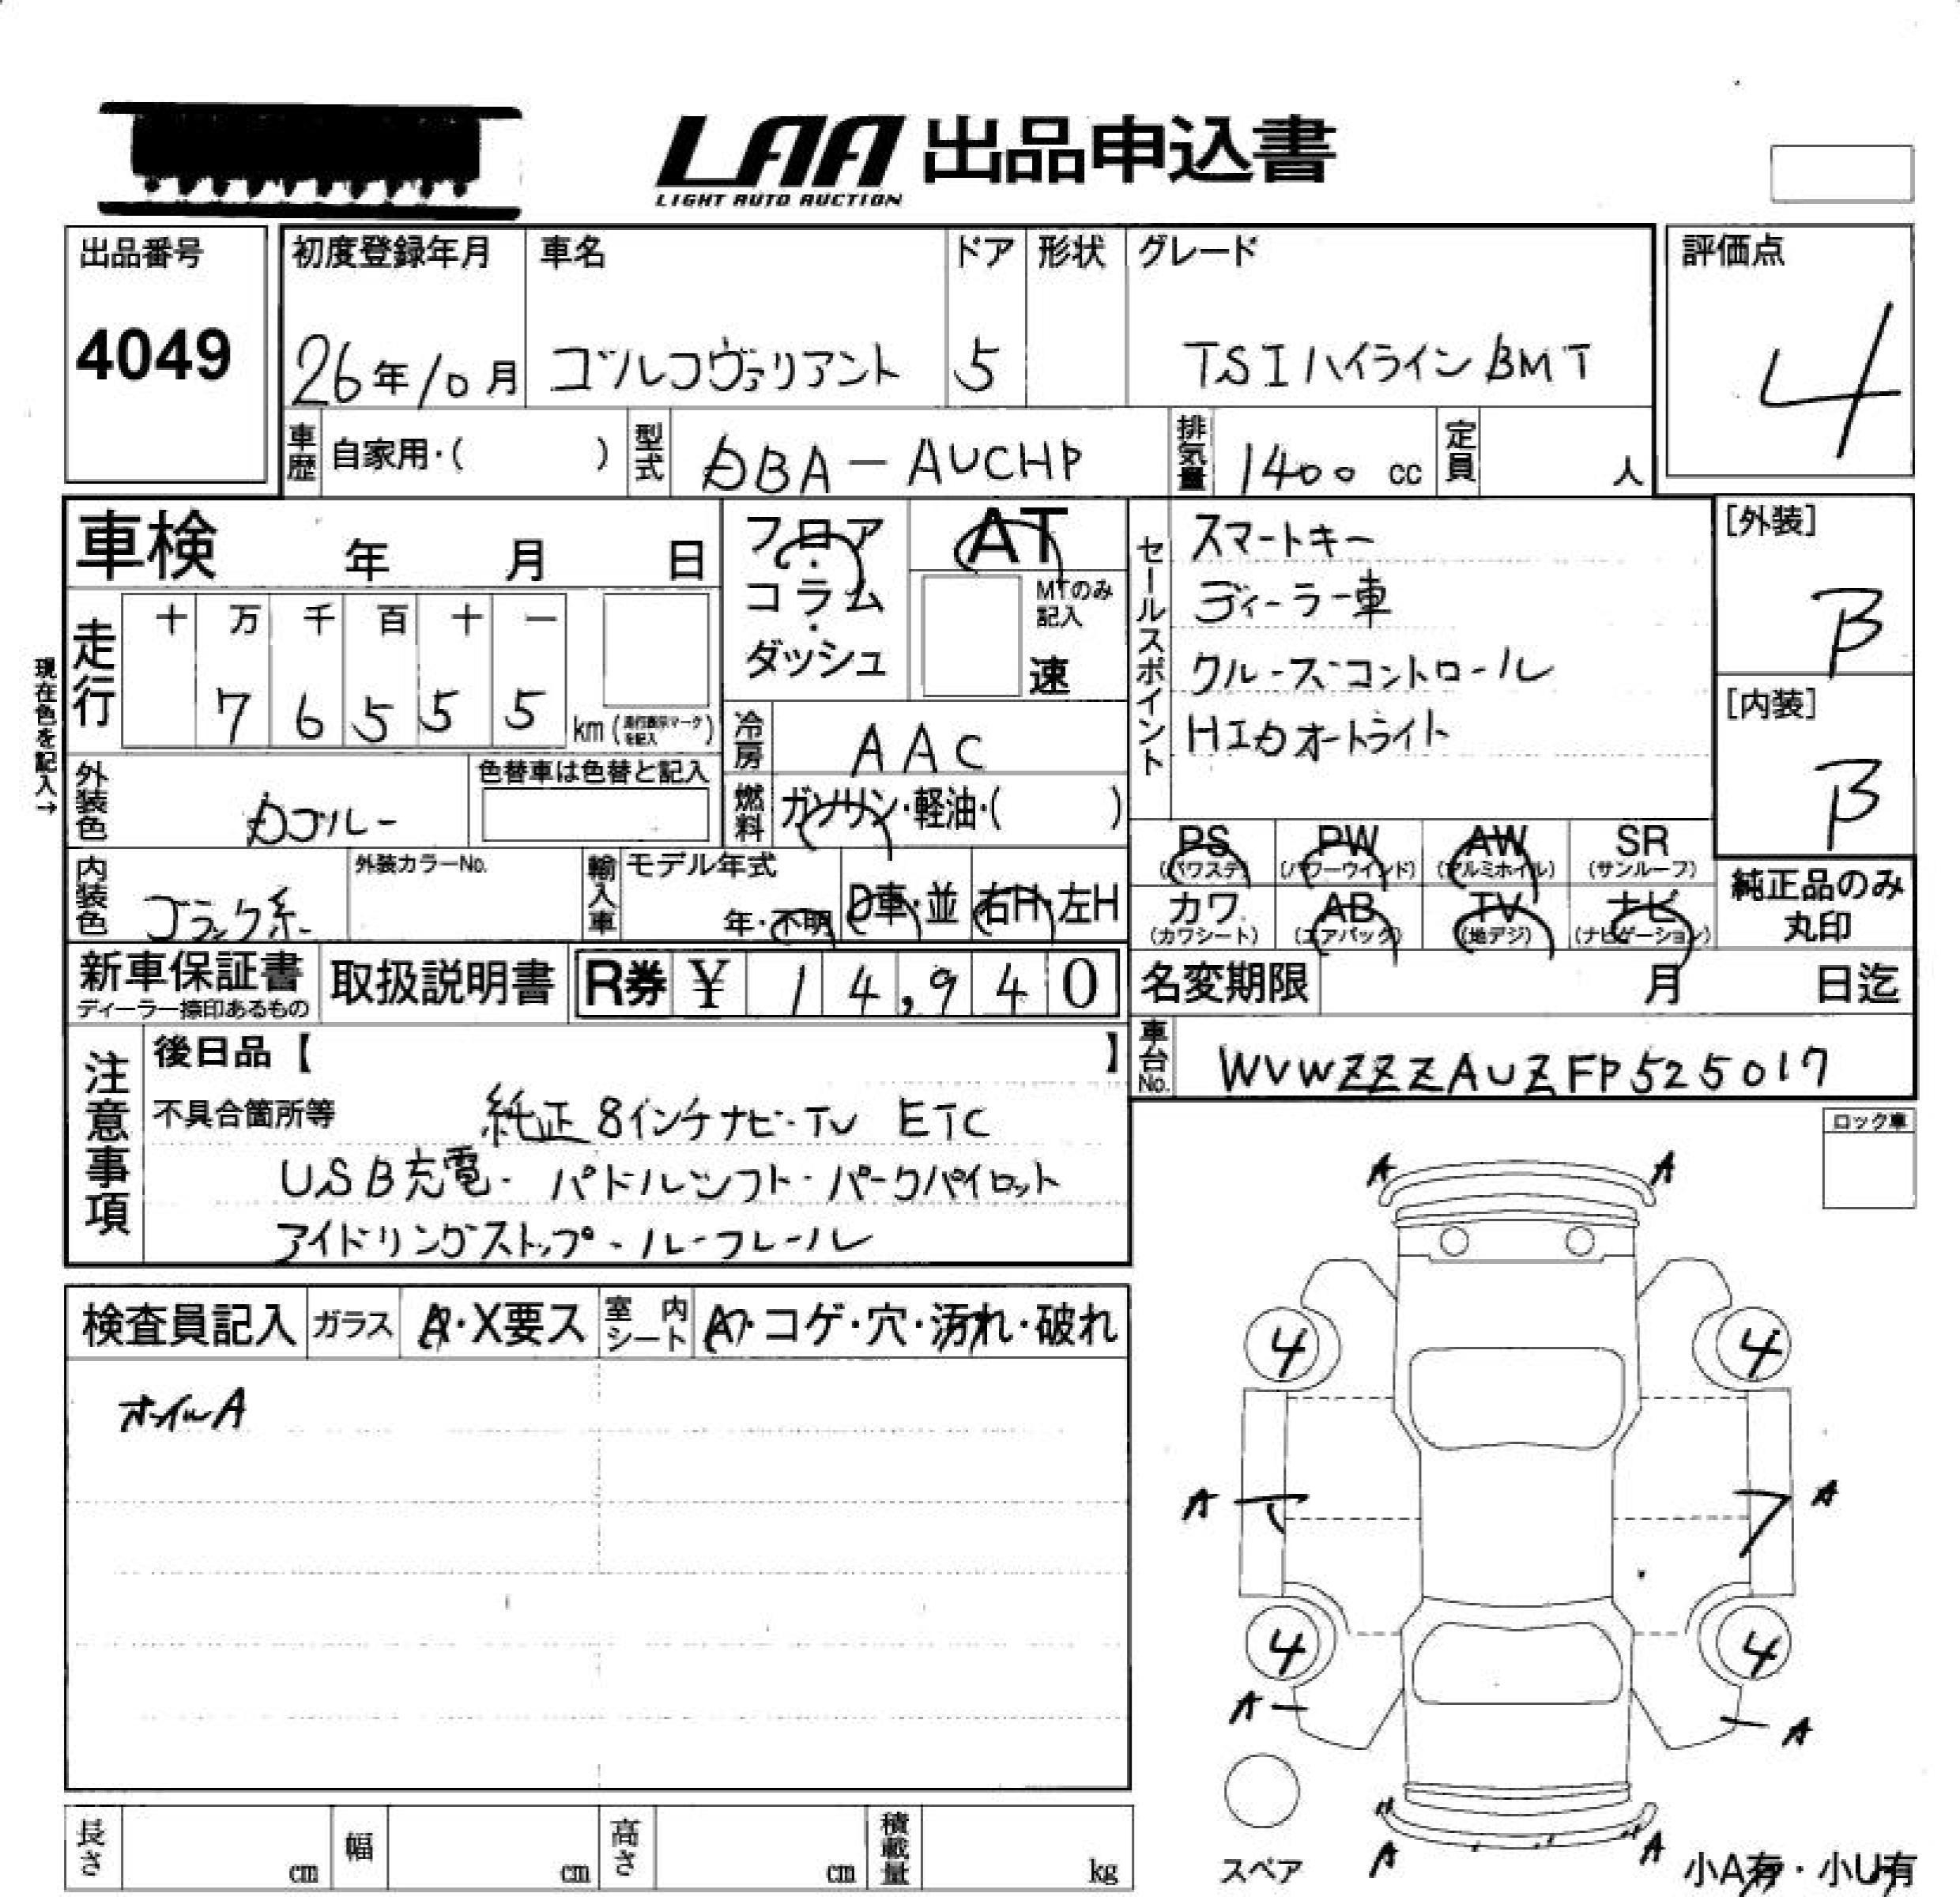 LAA 出品申込書
LIGHT AUTO AUCTION
出品番号 初度登録年月 車名 ドア 形状 グレード 評価点
4049 26年10月 ゴルフヴァリアント 5 TSIハイラインBMT 4
車歴 自家用・( ) 型式 DBA-AUCHP 排気量 1400 cc 定員 人
車検 年 月 日
フロア・コラム・ダッシュ
AT
MTのみ記入
速
現在色を記入→
走行 十 万 千 百 十 一
7 6 5 5 5 km (走行表示マークを記入)
冷房 AAC
外装色 Dブルー 色替車は色替と記入
燃料 ガソリン・軽油・( )
内装色 ブラック系 外装カラーNo.
輸入車 モデル年式 年・不明 D車・並 右H・左H
セールスポイント
スマートキー
ディーラー車
クルーズコントロール
HIDオートライト
[外装]
B
[内装]
B
PS PW AW SR
(パワステ) (パワーウインド) (アルミホイル) (サンルーフ)
カワ AB TV ナビ
(カワシート) (エアバック) (地デジ) (ナビゲーション)
純正品のみ
丸印
新車保証書 取扱説明書 R券 ¥ 14,940
ディーラー捺印あるもの
名変期限 月 日迄
車台No. WVWZZZAUZFP525017
注意事項
後日品【 】
不具合箇所等 純正8インチナビ・TV ETC
USB充電・パドルシフト・パークパイロット
アイドリングストップ・ルーフレール
ロック車
検査員記入 ガラス A・X要ス 室内シート A・コゲ・穴・汚れ・破れ
ホイルA
A A
4 4
A A
4 4
A A
A A
スペア
小A有・小U有
長さ cm 幅 cm 高さ cm 積載量 kg